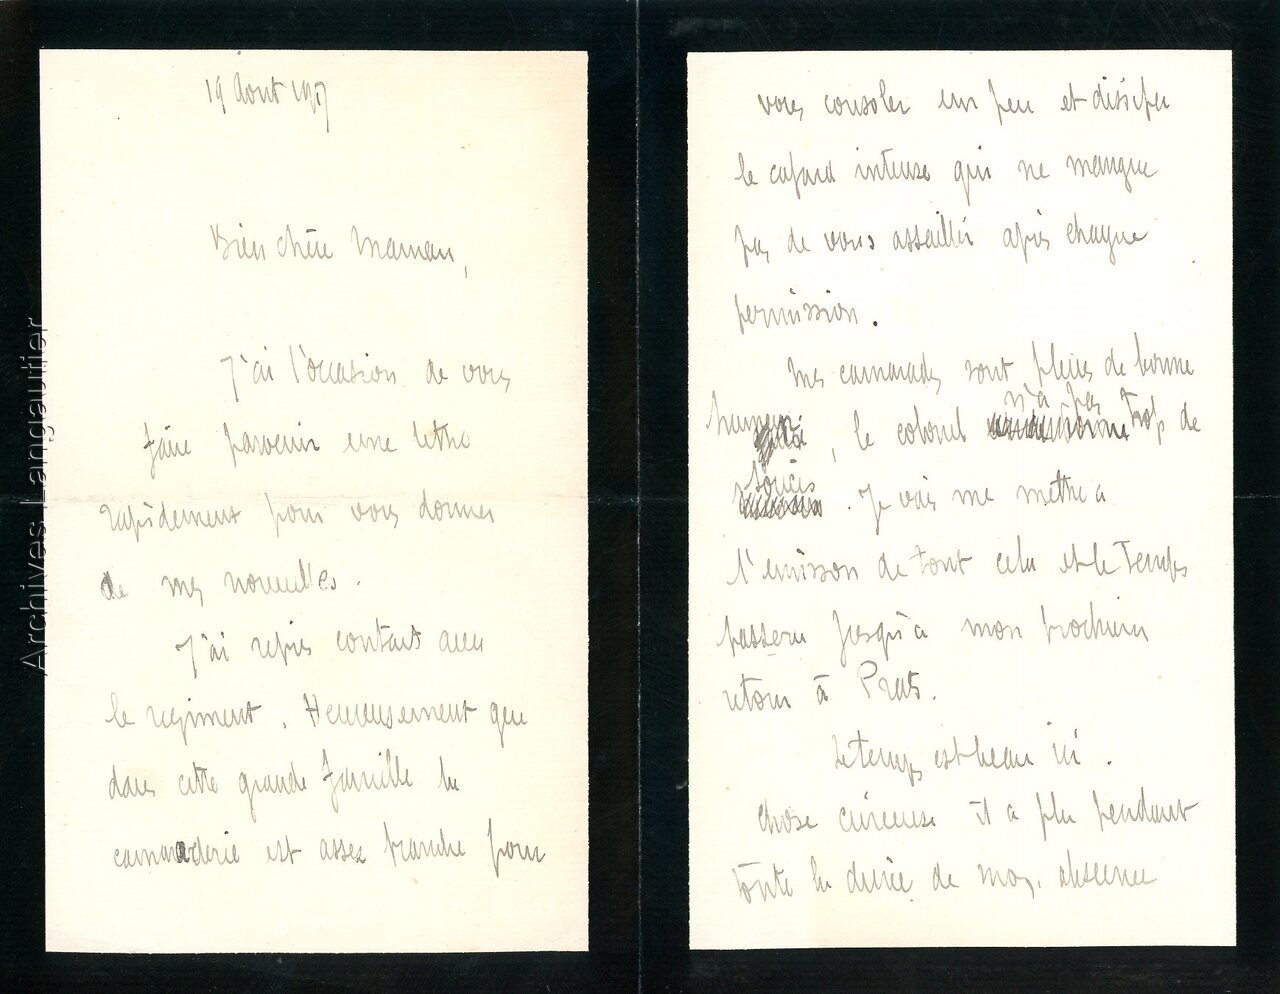 19 Aout 1917
Bien chère Maman,
J'ai l'occasion de vous
faire parvenir une lettre
rapidement pour vous donner
de mes nouvelles.
J'ai repris contact avec
le regiment. Heureusement que
dans cette grande famille la
camaraderie est assez franche pour
vous consoler un peu et dissiper
le cafard intense qui ne manque
pas de vous assaillir après chaque
permission.
Mes camarades sont pleins de bonne
humeur, le colonel n'a pas trop de
soucis. Je vais me mettre a
l'unisson de tout cela et le temps
passera jusqu'a mon prochain
retour à Prats.
Le temps est beau ici.
chose curieuse il a plu pendant
toute la durée de mon absence
Archives Langautier